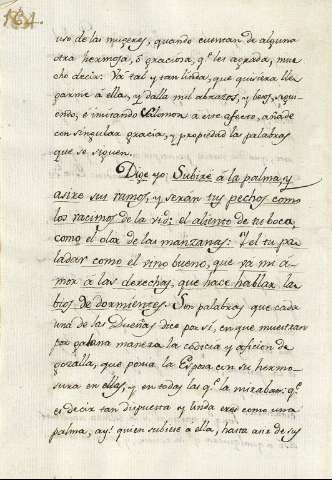 164
uso de las mugeres, quando cuentan de alguna
otra hermosa, ó graciosa, q.e les agrada, mu-
cho decir: Va tal y tan linda, que quisiera lle-
garme á ella, y dalla mil abrazos, y besos, sigui-
endo, é imitando Salomon á este afecto, añade
con singular gracia, y propiedad las palabras
que se siguen.
Dige yo: Subiré á la palma, y
asiré sus ramos, y serán tus pechos como
los racimos de la vid: el aliento de tu boca,
como el olor de las manzanas: Y el tu pa-
ladar como el vino bueno, que vá mi a-
mor á las derechas, que hace hablar la-
bios de dormientes. Son palabras que cada
una de las Dueñas dice por sí, en que muestran
por galana manera la codicia y aficion de
gozalla, que ponia la Esposa con su hermo-
sura en ellas, y en todas las q.e la miraban: q.e
es decir tan dispuesta y linda eres como una
palma, ay! quien subiese á ella, hasta asir de sus